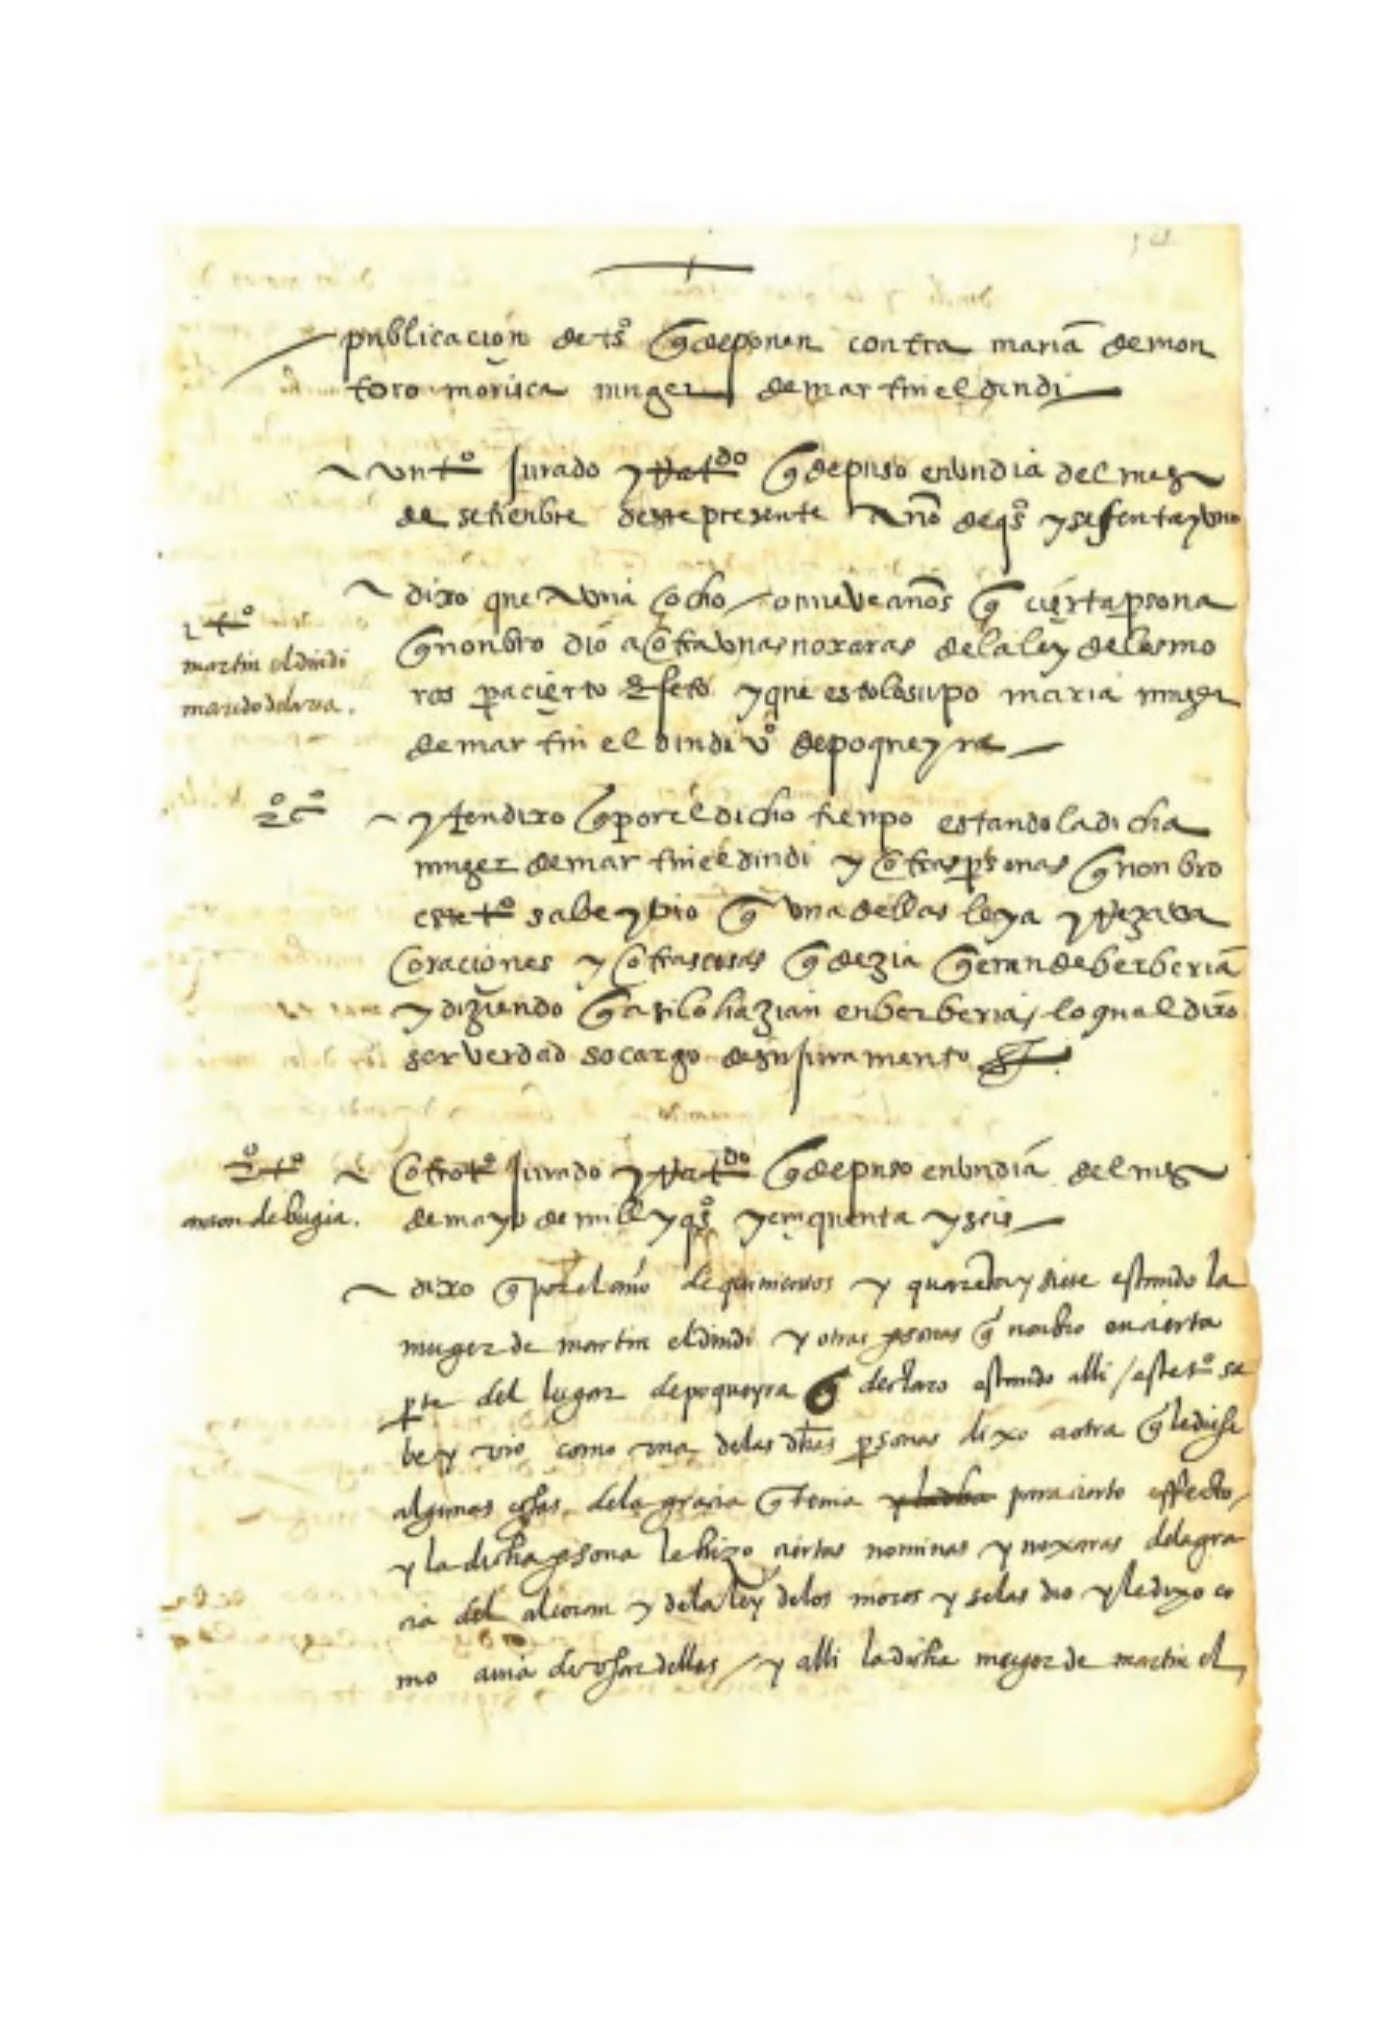 publicacion de ts° q deponen contra maria de mon
toro morisca muger de martin el dindi
un t° jurado y Rat^do q depuso en un dia del mes
de setienbre deste presente Año de q°s y sesenta y uno
dixo que avra ocho / o nueve años q cierta psona
1 t°
martin el dindi
marido de la rea.
q nonbro dio a otra unas noxaras de la ley de los mo
ros pa cierto efeto y que esto lo supo maria muger
de martin el dindi v° de poqueyra
2° c°
yten dixo q por el dicho tienpo estando la dicha
muger de martin el dindi y otras psonas q nonbro
este t° sabe y vio q una dellas leya y Rezava
oraciones y otras cosas q dezia q eran de berberia
y diziendo q asi lo hazian en berberia / lo qual dixo
ser verdad so cargo de su juramento
2° t°
otro t° jurado y Rat^do q depuso en un dia del mes
de bugia.
de mayo de mill y q°s y cinquenta y seis
dixo q por el año de quinientos y quarenta y siete estando la
muger de martin el dindi y otras psonas q nonbro en cierta
pte del lugar de poqueyra q declaro estando alli / este t° sa
be y vio como una de las dhas psonas dixo a otra q le diese
algunas cosas de la gracia q tenia y la dha para cierto effecto /
y la dicha psona le hizo ciertas nominas y noxaras de la gra
cia del alcoran y de la ley de los moros y se las dio y le dixo co
mo avia de usar dellas / y alli la dicha muger de martin el